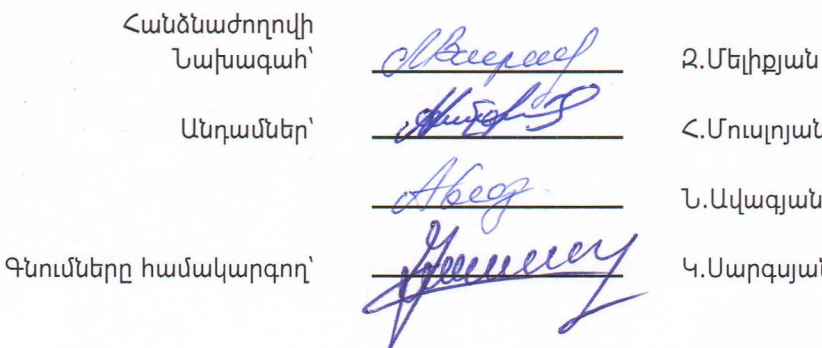 Հանձնաժողովի
Նախագահ՝ Զ.Մելիքյան
Անդամներ՝ Հ.Մուսլոյան
Ն.Ավագյան
Գնումները համակարգող՝ Կ.Սարգսյան